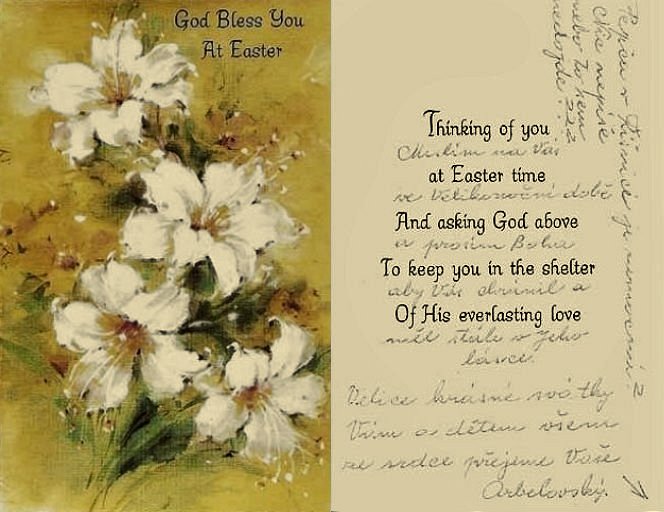 God Bless You
At Easter
Thinking of you
Myslím na Vás
at Easter time
ve Velikonoční době
And asking God above
a prosím Boha
To keep you in the shelter
aby Vás chránil a
Of His everlasting love
měl stále v Jeho
lásce.
Velice krásné svátky
Vám a dětem všem
ze srdce přejeme Vaše
Arbelovský.
Pepicu v je nemocná?
Nic nepíše
nebo to sem
nedojde???